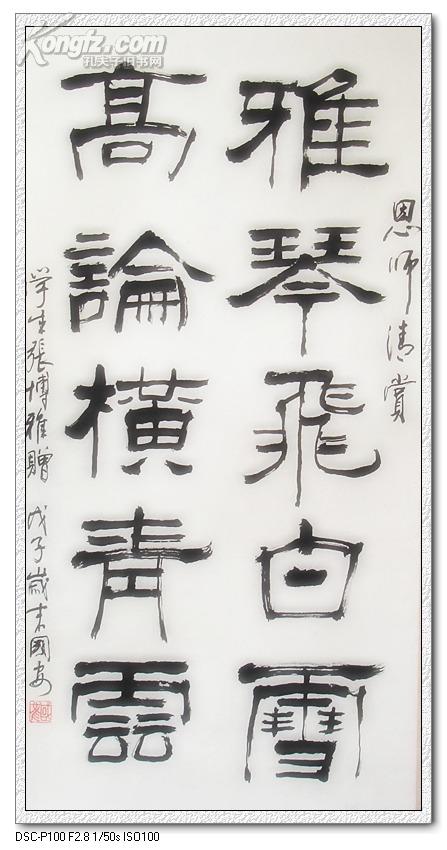 恩师清赏
雅琴飛白雪
高論横青雲
学生張博雅贈 戊子歲末國安
Kongfz.com
孔夫子旧书网
DSC-P100 F2.8 1/50s ISO100